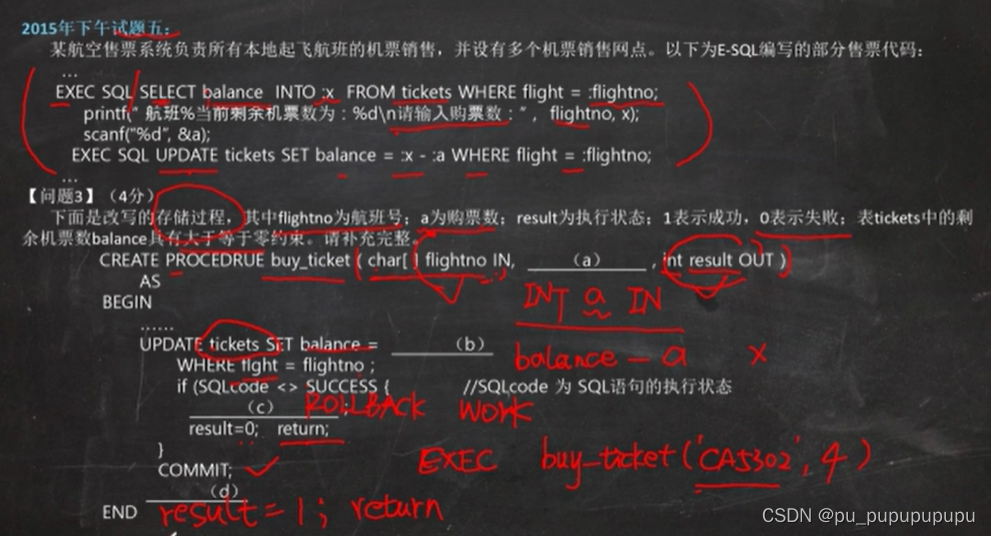 2015年下午试题五：
某航空售票系统负责所有本地起飞航班的机票销售，并设有多个机票销售网点。以下为E-SQL编写的部分售票代码：
...
EXEC SQL SELECT balance INTO :x FROM tickets WHERE flight = :flightno;
printf(" 航班%当前剩余机票数为：%d\n请输入购票数：", flightno, x);
scanf("%d", &a);
EXEC SQL UPDATE tickets SET balance = :x - :a WHERE flight = :flightno;
...
【问题3】（4分）
下面是改写的存储过程，其中flightno为航班号；a为购票数；result为执行状态；1表示成功，0表示失败；表tickets中的剩
余机票数balance具有大于等于零约束。请补充完整。
CREATE PROCEDRUE buy_ticket ( char[ ] flightno IN, ____（a）____ , int result OUT )
AS
INT a IN
BEGIN
......
UPDATE tickets SET balance = ____（b）____
balance - a x
WHERE fight = flightno ;
if (SQLcode <> SUCCESS { //SQLcode 为 SQL语句的执行状态
____（c）____; ROLLBACK WORK
result=0; return;
}
EXEC buy_ticket('CA5302', 4)
COMMIT;
____（d）____
END result = 1; return
CSDN @pu_pupupupupu